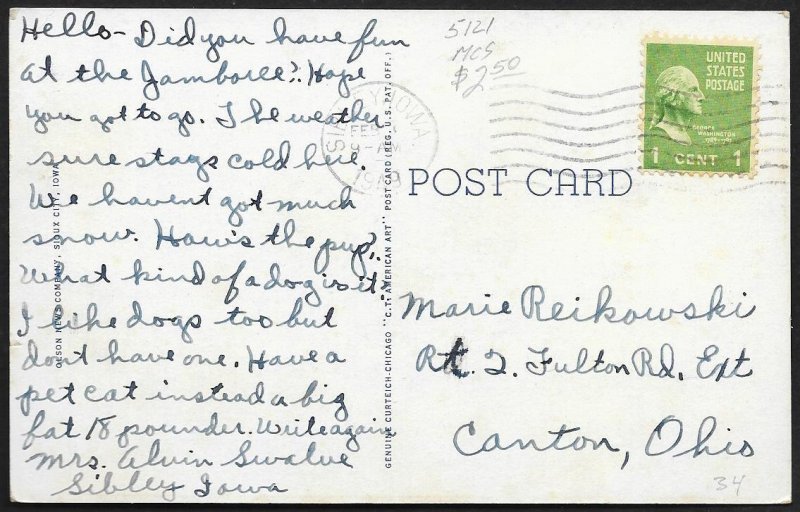 Hello- Did you have fun
at the Jamboree? Hope
you got to go. The weather
sure stays cold here.
We havent got much
snow. How's the pup?
What kind of a dog is it?
I like dogs too but
dont have one. Have a
pet cat instead a big
fat 18 pounder. Write again
Mrs. Alvin Swalve
Sibley Iowa
OLSON NEWS COMPANY, SIOUX CITY, IOWA
GENUINE CURTEICH-CHICAGO "C.T. AMERICAN ART" POST CARD (REG. U.S. PAT. OFF.)
5121
MCS
$2.50
SIBLEY, IOWA.
FEB
AM
UNITED
STATES
POSTAGE
GEORGE
WASHINGTON
1 CENT 1
POST CARD
Marie Reikowski
Rt. 2. Fulton Rd. Ext
Canton, Ohio
34